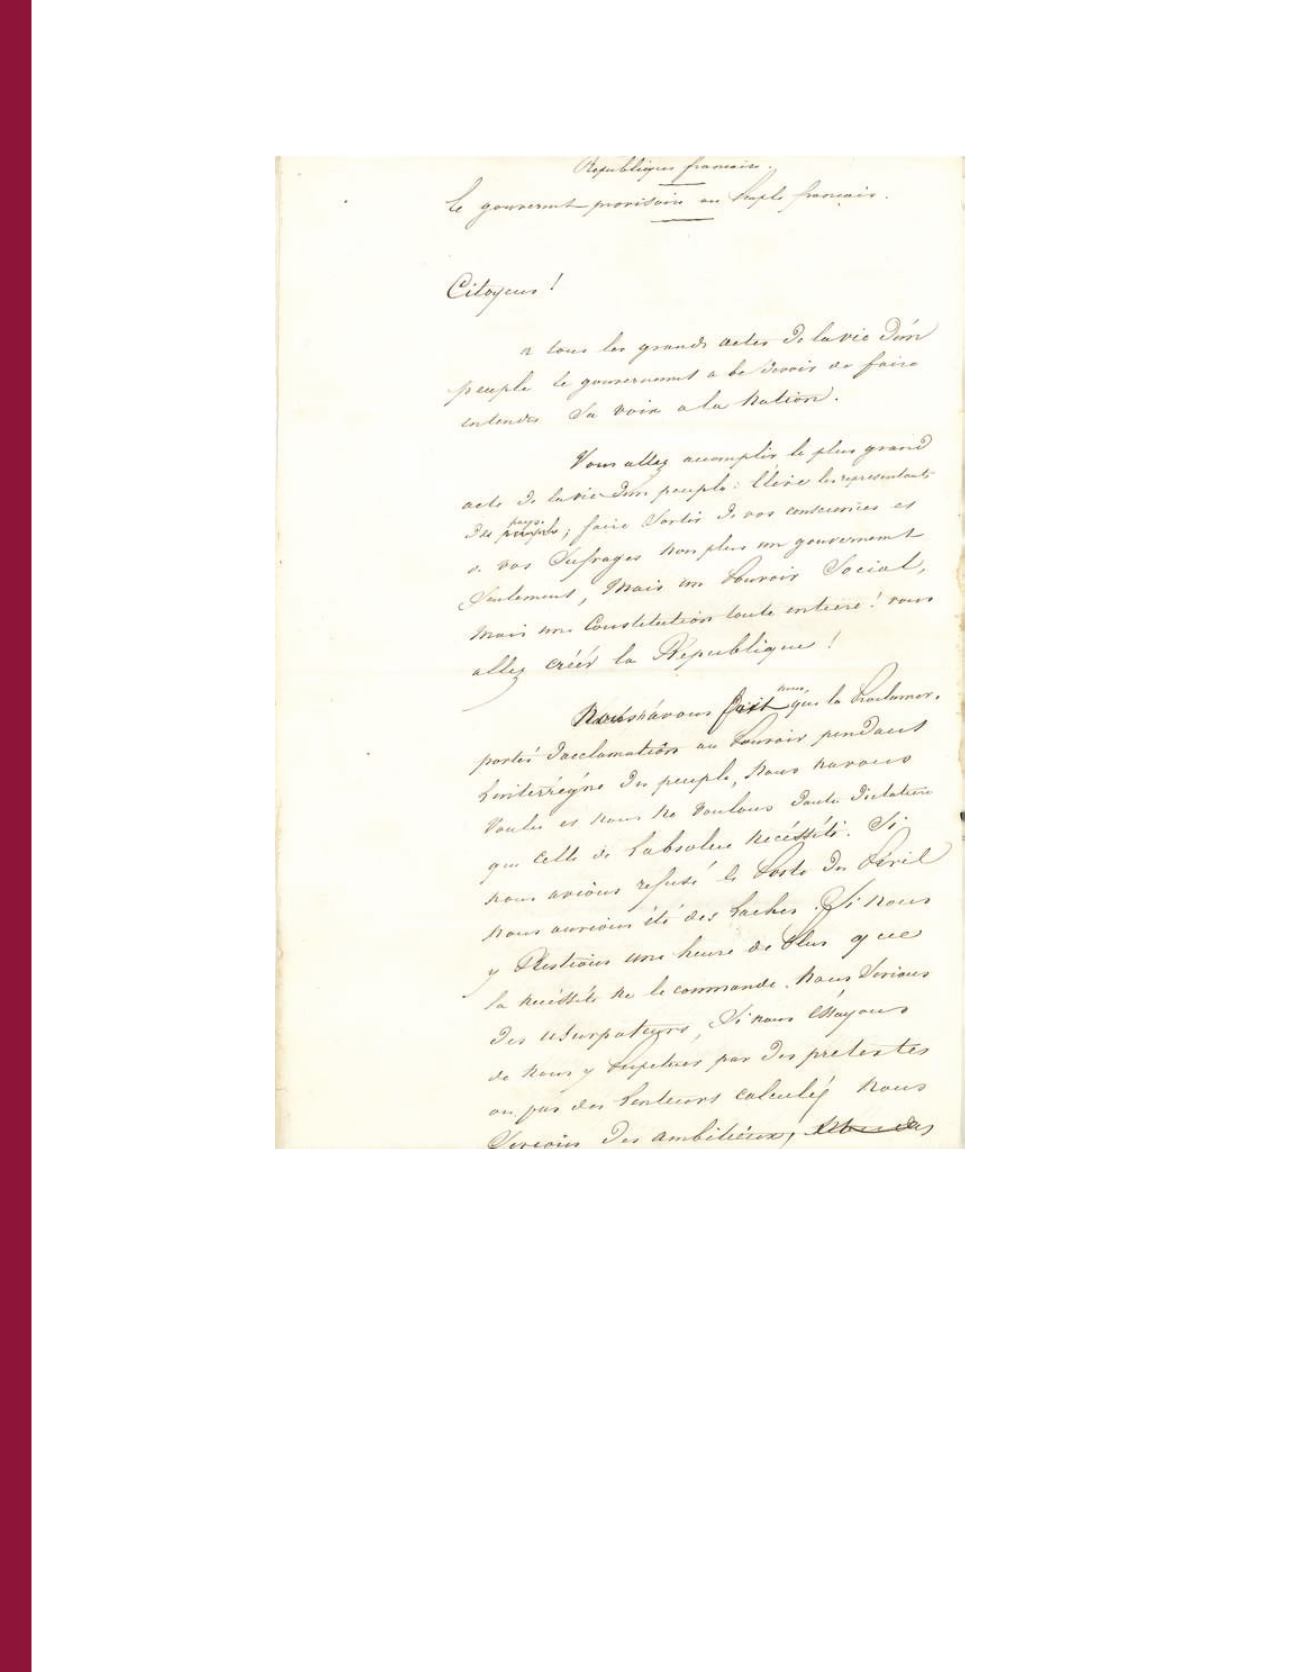 Republique francaise.
le gouvernmt provisoire au Peuple francais.
Citoyens !
a tous les grands actes de la vie d'un
peuple le gouvernement a le devoir de faire
entendre Sa voix a la Nation.
Vous allez accomplir le plus grand
acte de la vie d'un peuple : Elire les representants
du pays; faire Sortir de vos consciences et
de vos Sufrages non plus un gouvernement
Seulement, Mais un Pouvoir Social,
Mais une Constitution toute entiere ! vous
allez créér la République !
Nous n'avons fait nous, que la Proclamer.
portés d'acclamation au Pouvoir pendant
L'interrégne du peuple, Nous n'avons
Voulu et nous ne Voulons d'autre dictature
que celle de L'absolue Nécéssité. Si
nous avions refusé le Poste du Péril
Nous aurions été des Laches. Si Nous
y Restions une heure de Plus que
la nécéssité ne le commande. Nous Serions
Des usurpateurs, Si nous Essayons
de Nous y Perpetuer par Des pretextes
ou par des Lenteurs calculés Nous
Serions Des ambitieux,